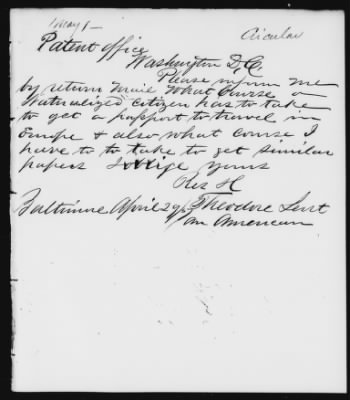 May 1 — Circular
Patent office
Washington D,C,
Please inform me
by return mail What Course a
Naturalized citizen has to take
to get a pasport to travel in
Europe & also what course I
have to to take to get similar
papers Oblige yours
Res
Baltimore April 29 Theodore
an American